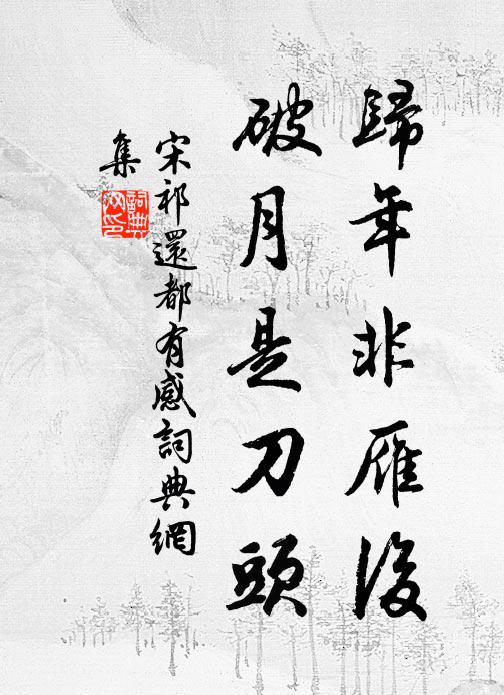 歸年非雁後
破月是刀頭
宋祁還都有感詞典網
集
詞典
网印